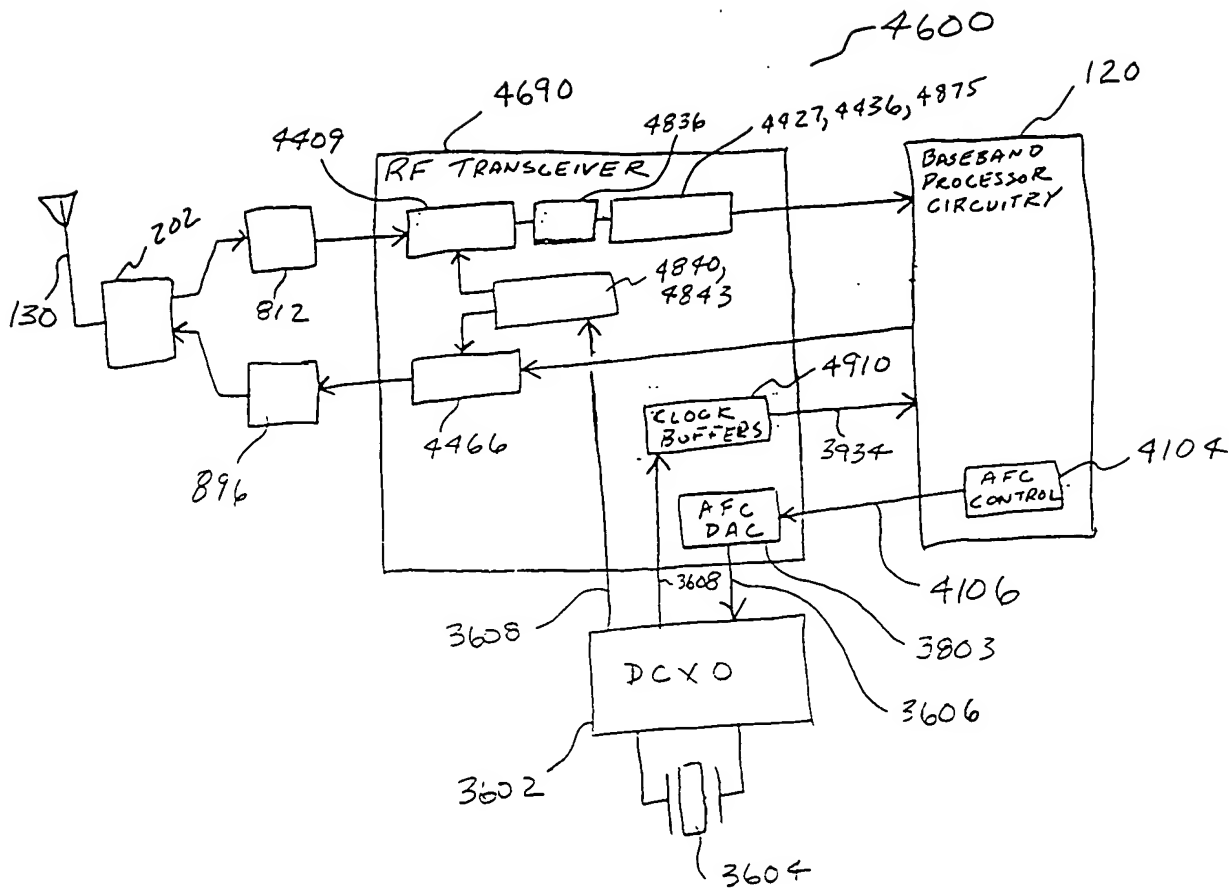 4600
4690
120
4409
4836
4427, 4436, 4875
RF TRANSCEIVER
BASEBAND
PROCESSOR
CIRCUITRY
202
812
4840,
4843
130
4466
896
4910
CLOCK
BUFFERS
3934
4104
AFC
CONTROL
AFC
DAC
4106
3608
3608
3803
3606
DCXO
3602
3604